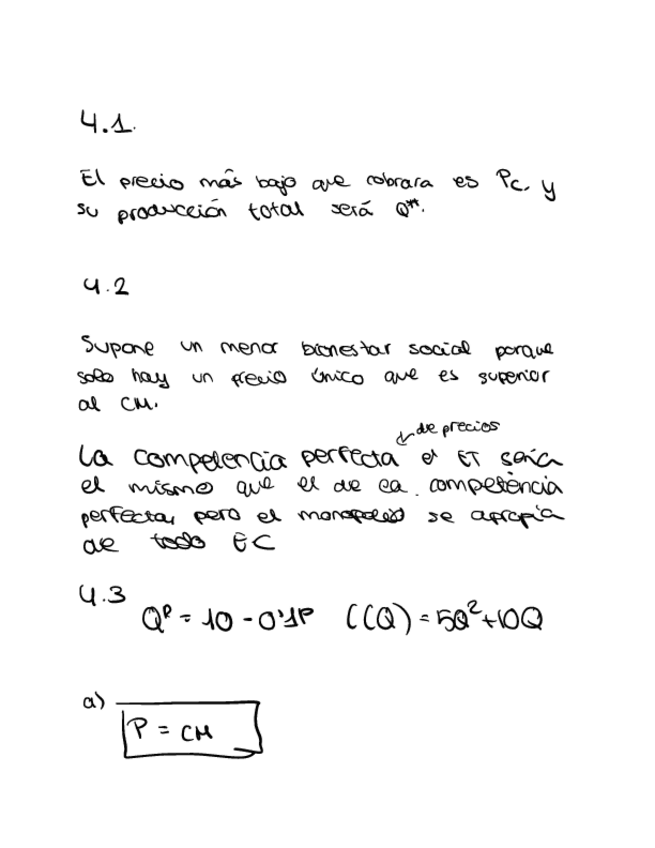 4.1.
El precio más bajo que cobrara es Pc, y
su producción total será Q**.
4.2
Supone un menor bienestar social porque
solo hay un precio único que es superior
al CM.
de precios
La competencia perfecta el ET sería
el mismo que el de la competencia
perfecta, pero el monopolio se apropia
de todo EC
4.3
Qᴰ = 10 - 0'1P C(Q) = 5Q² + 10Q
a)
P = CM